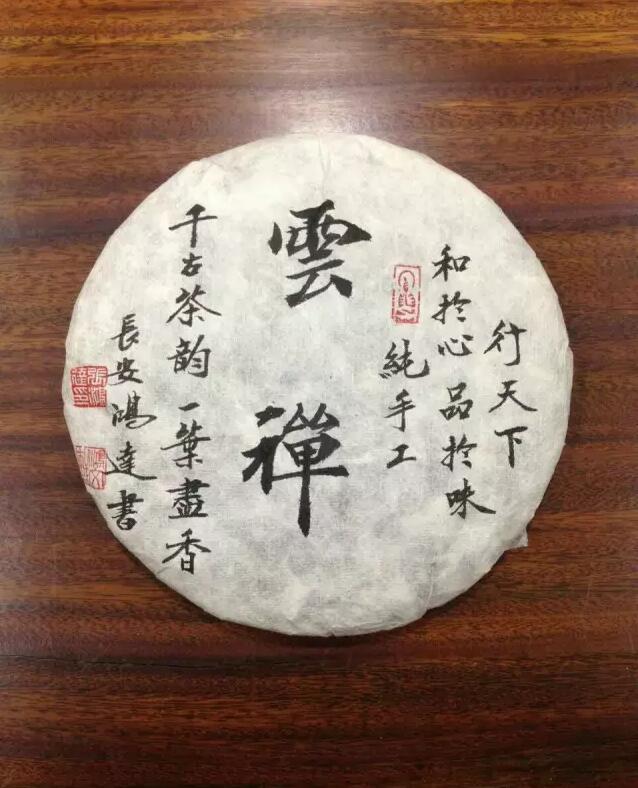 行天下
和於心品於味
純手工
雲禪
千古茶韵一葉盡香
長安鴻達書